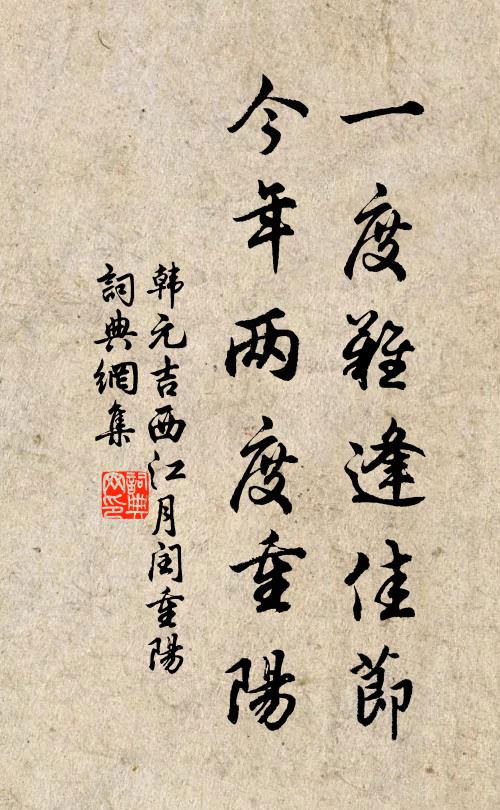 一度難逢佳節
今年两度重陽
韩元吉西江月闰重陽
詞典網集
詞典
网印